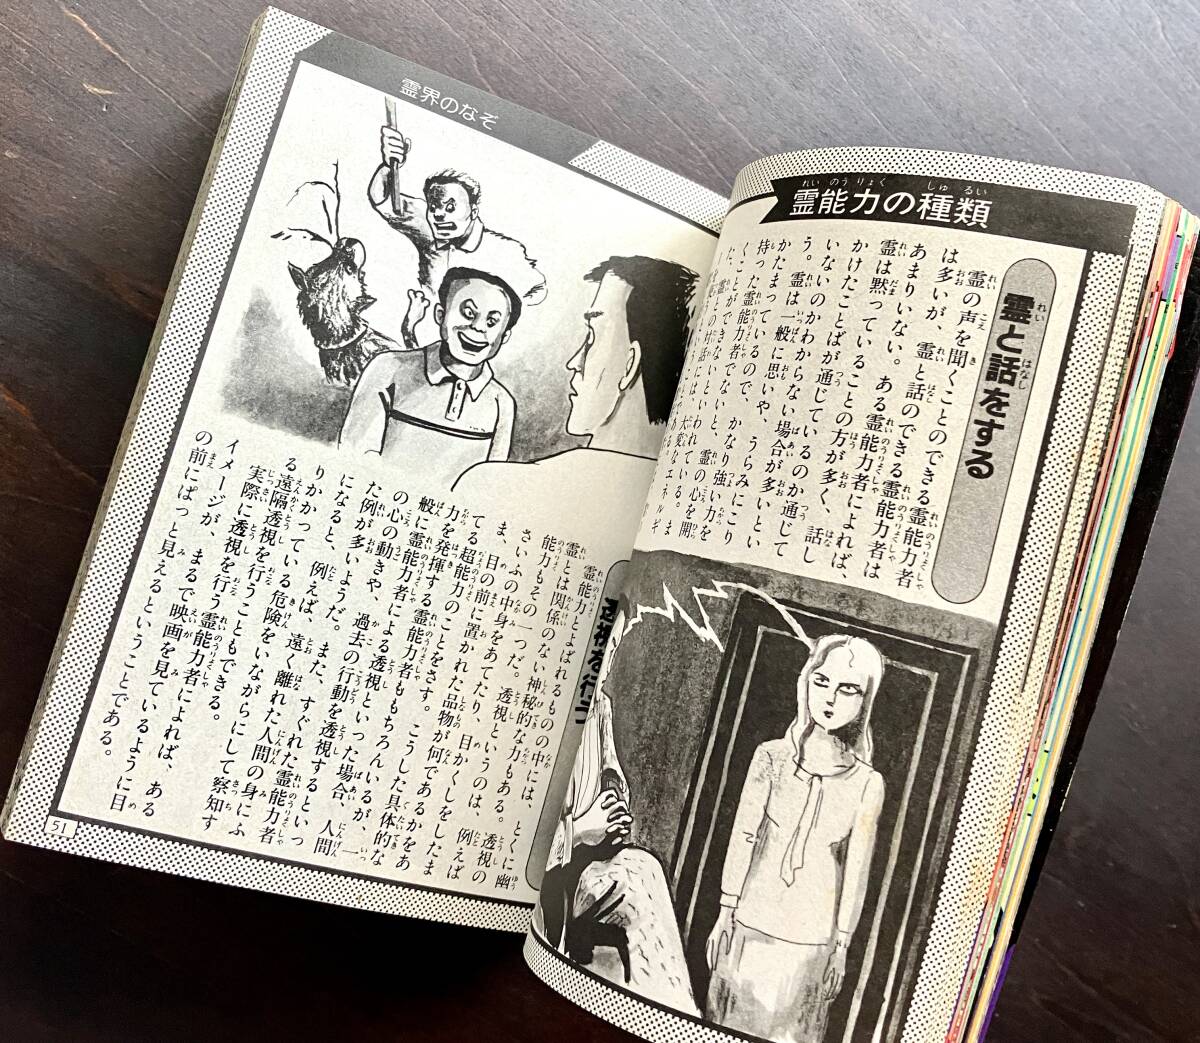 霊能力の種類
霊と話をする
霊の声を聞くことのできる霊能力者
は多いが、霊と話のできる霊能力者は
あまりいない。ある霊能力者によれば、
霊は黙っていることの方が多く、話し
かけたことばが通じているのか通じて
いないのかわからない場合が多いとい
う。霊は一般に思いや、うらみにこり
かたまっているので、かなり強い力を
持った霊能力者でないと、霊の心を開
くことができないといわれている。ま
た、霊との対話には、大変なエネルギ
霊界のなぞ
透視を行う
霊能力とよばれるものの中には、とくに幽
霊とは関係のない神秘的な力もある。透視の
能力もその一つだ。透視というのは、例えば
さいふの中身をあてたり、目かくしをしたま
ま、目の前に置かれた品物が何であるかをあ
てる超能力のことをさす。こうした具体的な
力を発揮する霊能力者ももちろんいるが、一
般に霊能力者による透視といった場合、人間
の心の動きや、過去の行動を透視するといっ
た例が多いようだ。また、すぐれた霊能力者
になると、例えば、遠く離れた人間の身にふ
りかかっている危険をいながらにして察知す
る遠隔透視を行うこともできる。
実際に透視を行う霊能力者によれば、ある
イメージが、まるで映画を見ているように目
の前にぱっと見えるということである。
51